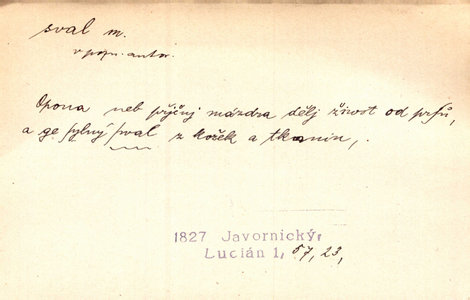 sval m.
v popr. autor.
Opona neb přjčnj mázdra dělj žiwot od prsů,
a ge sylný swal z kožek a tkanin,.
1827 Javornický,
Lucián 1, 57, 23,